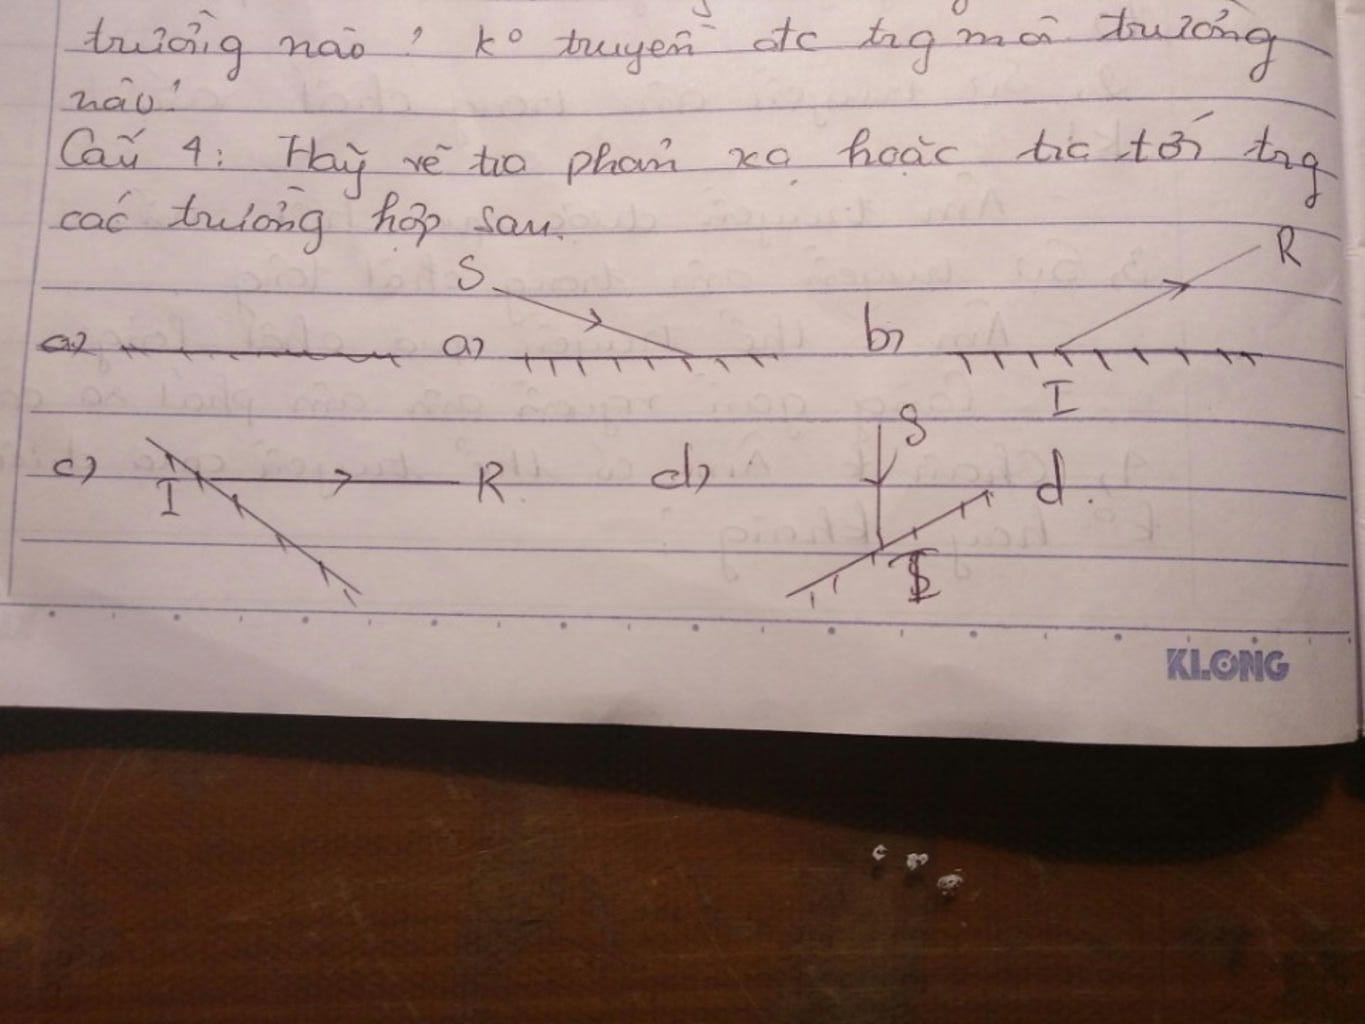 trường nào? ko truyền đtc trg môi trường
nào?
Câu 4: Hãy vẽ tia phản xạ hoặc tia tới trg
các trường hợp sau.
a) S b) R
I
c) I R d) S d.
I
KLONG